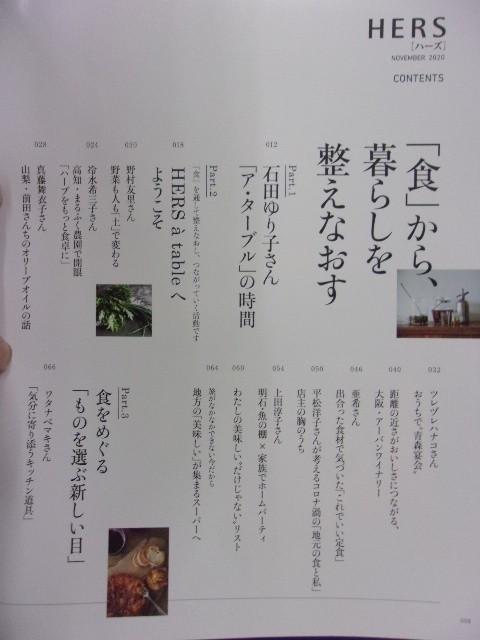 HERS
[ハーズ]
NOVEMBER 2020
CONTENTS
「食」から、
暮らしを
整えなおす
Part.1
012
石田ゆり子さん
「ア・ターブル」の時間
Part.2
「食」を通して整えなおし、つながっていく活動です
018
HERS à tableへ
ようこそ
020
野村友里さん
野菜も人も「土」で変わる
024
冷水希三子さん
高知・まるふく農園で開眼
「ハーブをもっと食卓に」
028
真藤舞衣子さん
山梨・前田さんちのオリーブオイルの話
032
ツレヅレハナコさん
おうちで、“青森宴会”
040
距離の近さがおいしさにつながる、
大阪・アーバンワイナリー
046
亜希さん
出合った食材で気づいた「これでいい定食」
050
平松洋子さんが考えるコロナ禍の「地元の食と私」
店主の胸のうち
054
上田淳子さん
明石・魚の棚×家族でホームパーティ
060
わたしの美味しい“だけじゃない”リスト
064
旅がなかなかできない今だから
地方の「美味しい」が集まるスーパーへ
Part.3
食をめぐる
「ものを選ぶ新しい目」
066
ワタナベマキさん
「気分に寄り添うキッチン道具」